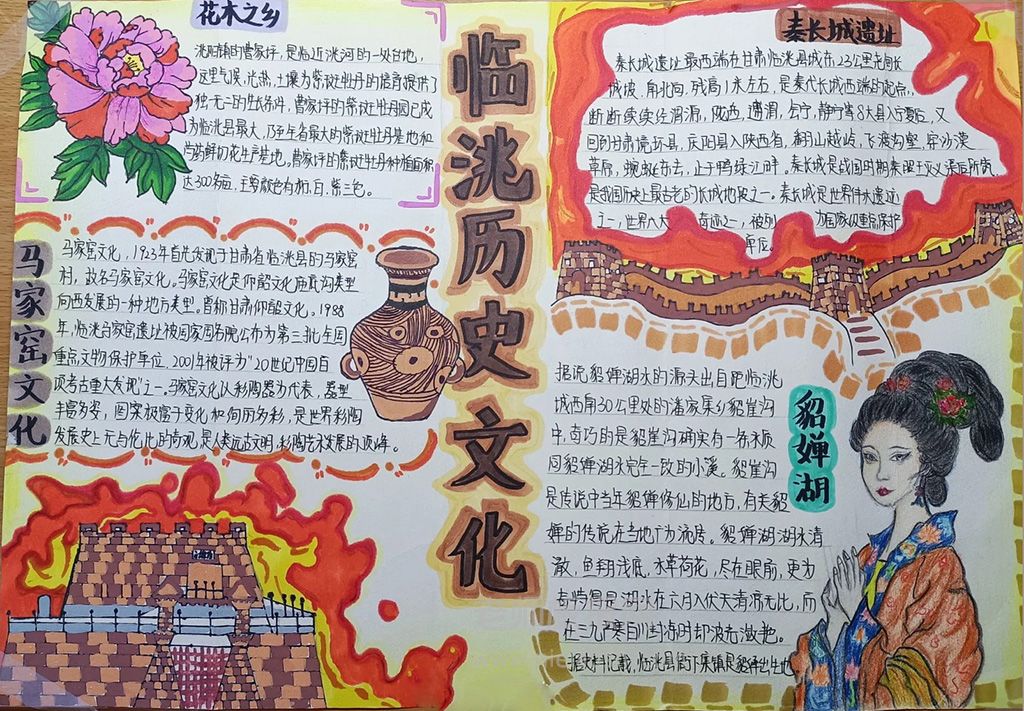 花木之乡
洮阳镇的曹家坪，是临近洮河的一处台地，
这里气候、光热、土壤为紫斑牡丹的培育提供了
独一无二的生长条件，曹家坪的紫斑牡丹园已成
为临洮县最大，乃至年省最大的紫斑牡丹基地和
芍药鲜切花生产基地。曹家坪的紫斑牡丹种植面积
达300多亩，主要颜色有粉、白、紫三色。
马家窑文化
马家窑文化，1923年首先发现于甘肃省临洮县的马家窑
村，故名马家窑文化。马家窑文化是仰韶文化庙底沟类型
向西发展的一种地方类型。曾称甘肃仰韶文化。1988
年，临洮马家窑遗址被国家国务院公布为第三批全国
重点文物保护单位，2001年被评为"20世纪中国百
项考古重大发现"之一。马家窑文化以彩陶器为代表，器型
丰富多姿，图案极富于变化和绚丽多彩，是世界彩陶
发展史上无与伦比的奇观，是人类远古文明，彩陶艺术发展的顶峰。
临洮历史文化
秦长城遗址
秦长城遗址最西端在甘肃临洮县城市，23公里
长城坡，南北向，残高1米左右，是秦代长城西端的起点，
断断续续经渭源，陇西，通渭，会宁，静宁等8大县入宁夏后，又
回到甘肃境环县，庆阳县入陕西省，翻山越岭，飞渡沟壑，穿沙漠
草原，蜿蜒东去，止于鸭绿江畔。秦长城是战国时期秦昭王
是我国历史上最古老的长城地段之一。秦长城是世界伟大遗迹
之一，世界八大奇迹之一，被列为国家级重点保护
单位。
貂婵湖
据说貂婵湖水的源头出自距临洮
城西南30公里处的潘家集乡貂崖沟
中，奇巧的是貂崖沟确实有一条水质
同貂婵湖水完全一致的小溪。貂崖沟
是传说中当年貂婵修仙的地方，有关貂
婵的传说在当地广为流传。貂婵湖湖水清
澈，鱼翔浅底，水草荷花，尽在眼前，更为
奇特得是湖水在六月入伏天清凉无比，而
在三九严寒百川封冻时却波光潋滟。
据史料记载，临洮县衙下集镇是貂婵出生地